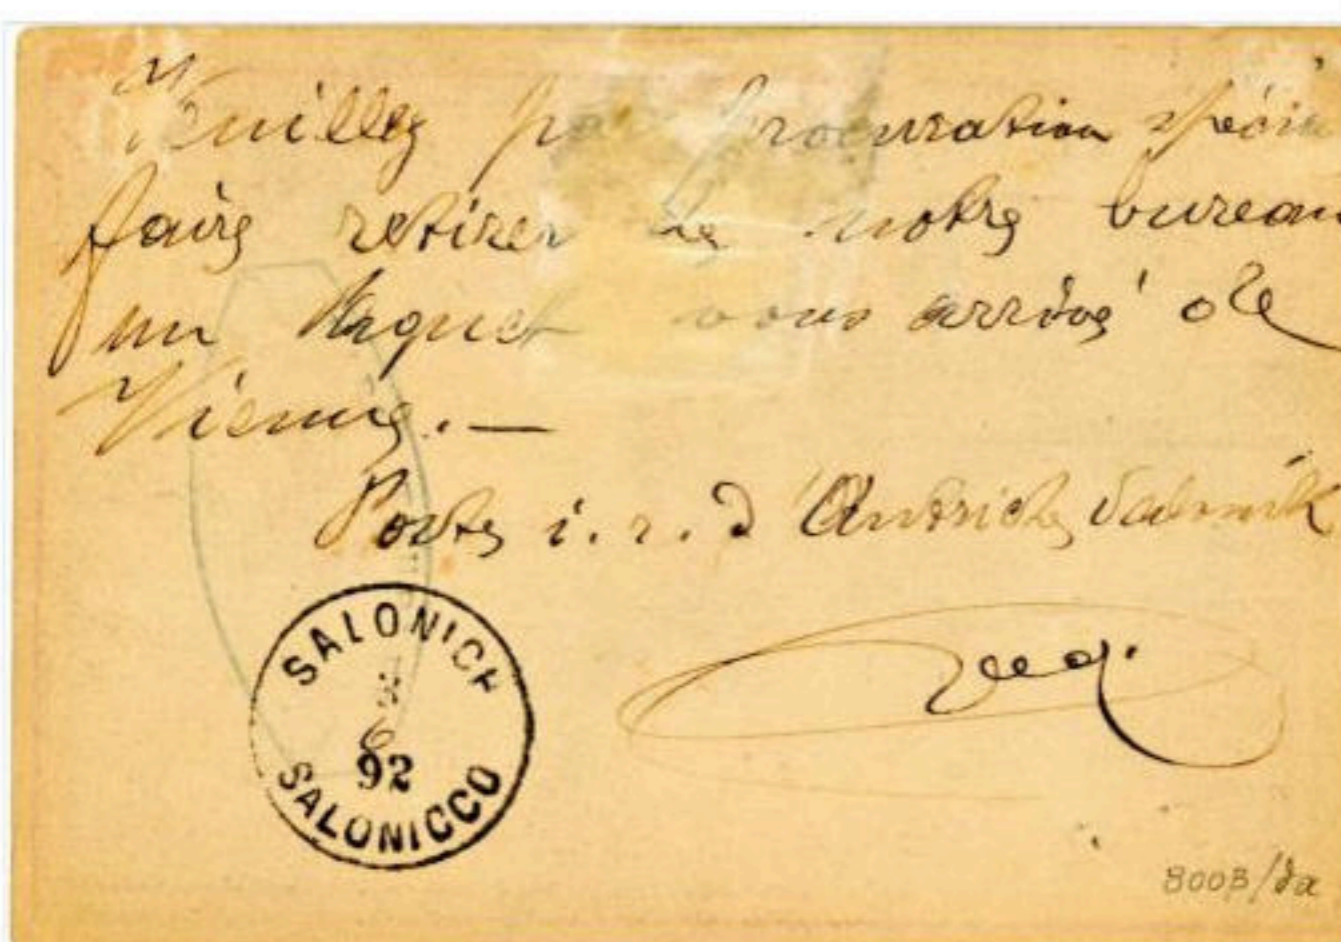 Veuillez par procuration spécia
faire retirer de notre bureau
un paquet vous arrivé de
Vienne. —
Poste i. r. d'Autriche Salonik
SALONICH
6
92
SALONICCO